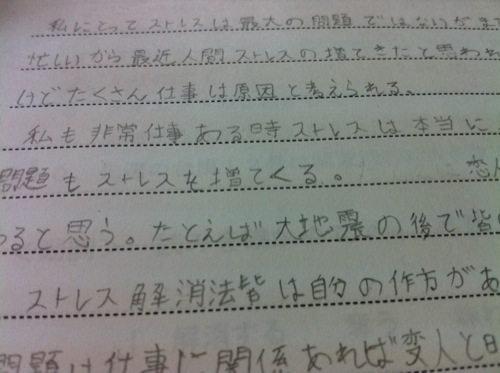 私にとってストレスは最大の問題ではないがま
忙しいから最近人間ストレスの増てきたと思われ
けどたくさん仕事は原因と考えられる。
私も非常仕事ある時ストレスは本当に
問題もストレスを増てくる。 恋
ると思う。たとえば大地震の後で皆
ストレス解消法皆は自分の作方があ
問題は仕事に関係あれば変人と